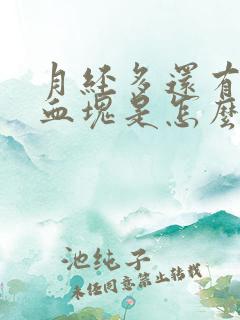 月经多還有
血塊是怎麼
池纯子
未经同意禁止转载